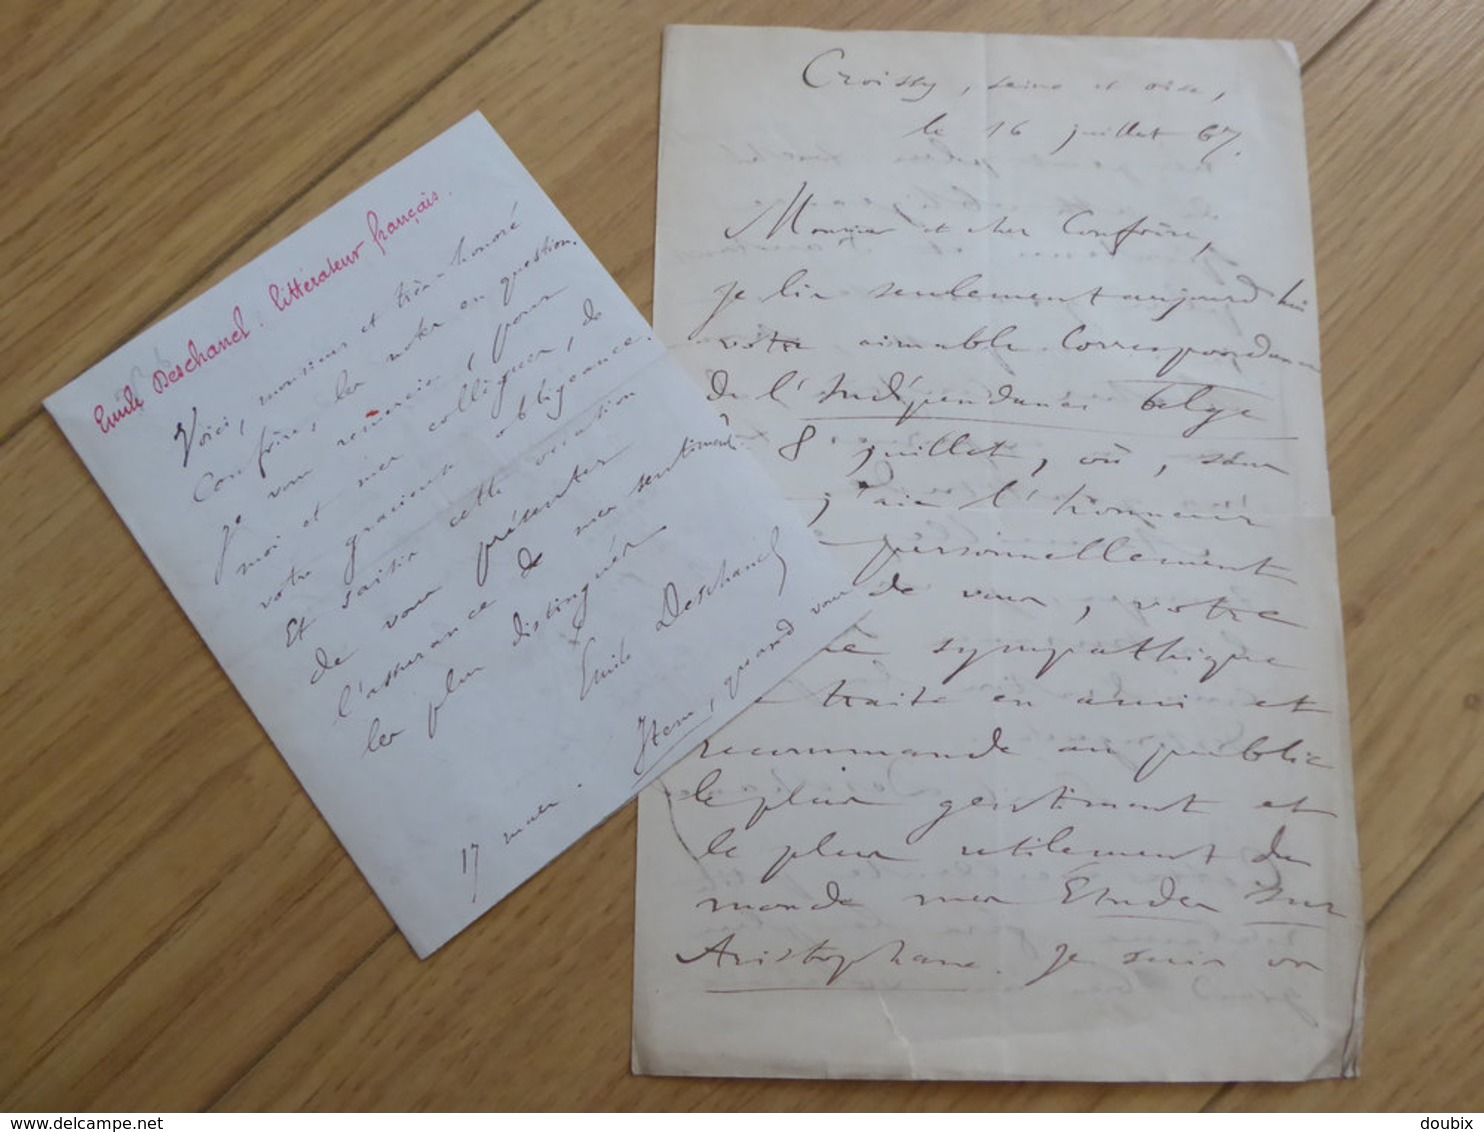 Emile Deschanel : littérateur français.
Voici, monsieur et très honoré
Confrère, les notes en question.
Je vous remercie, pour
moi et mes collègues, de
votre gracieuse obligeance.
Et saisis cette occasion
de vous présenter
l'assurance de mes sentiments
les plus distingués
Emile Deschanel
17 mars.
Item, quand vous
Croissy, seine et oise,
le 16 juillet 67.
Monsieur et cher Confrère,
je lis seulement aujourd'hui
votre aimable Correspondance
de l'Indépendance belge
8 juillet, où, sans
j'aie l'honneur
personnellement
de vous, votre
sympathique
traite en ami et
recommande au public
le plus gentiment et
le plus utilement du
monde mes Etudes sur
Aristophane. Je suis un
delcampe.net
doubix